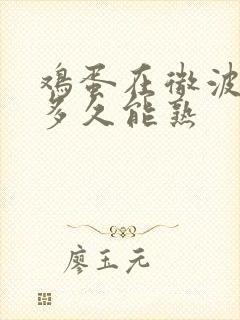 鸡蛋在微波
多久能熟
廖玉元